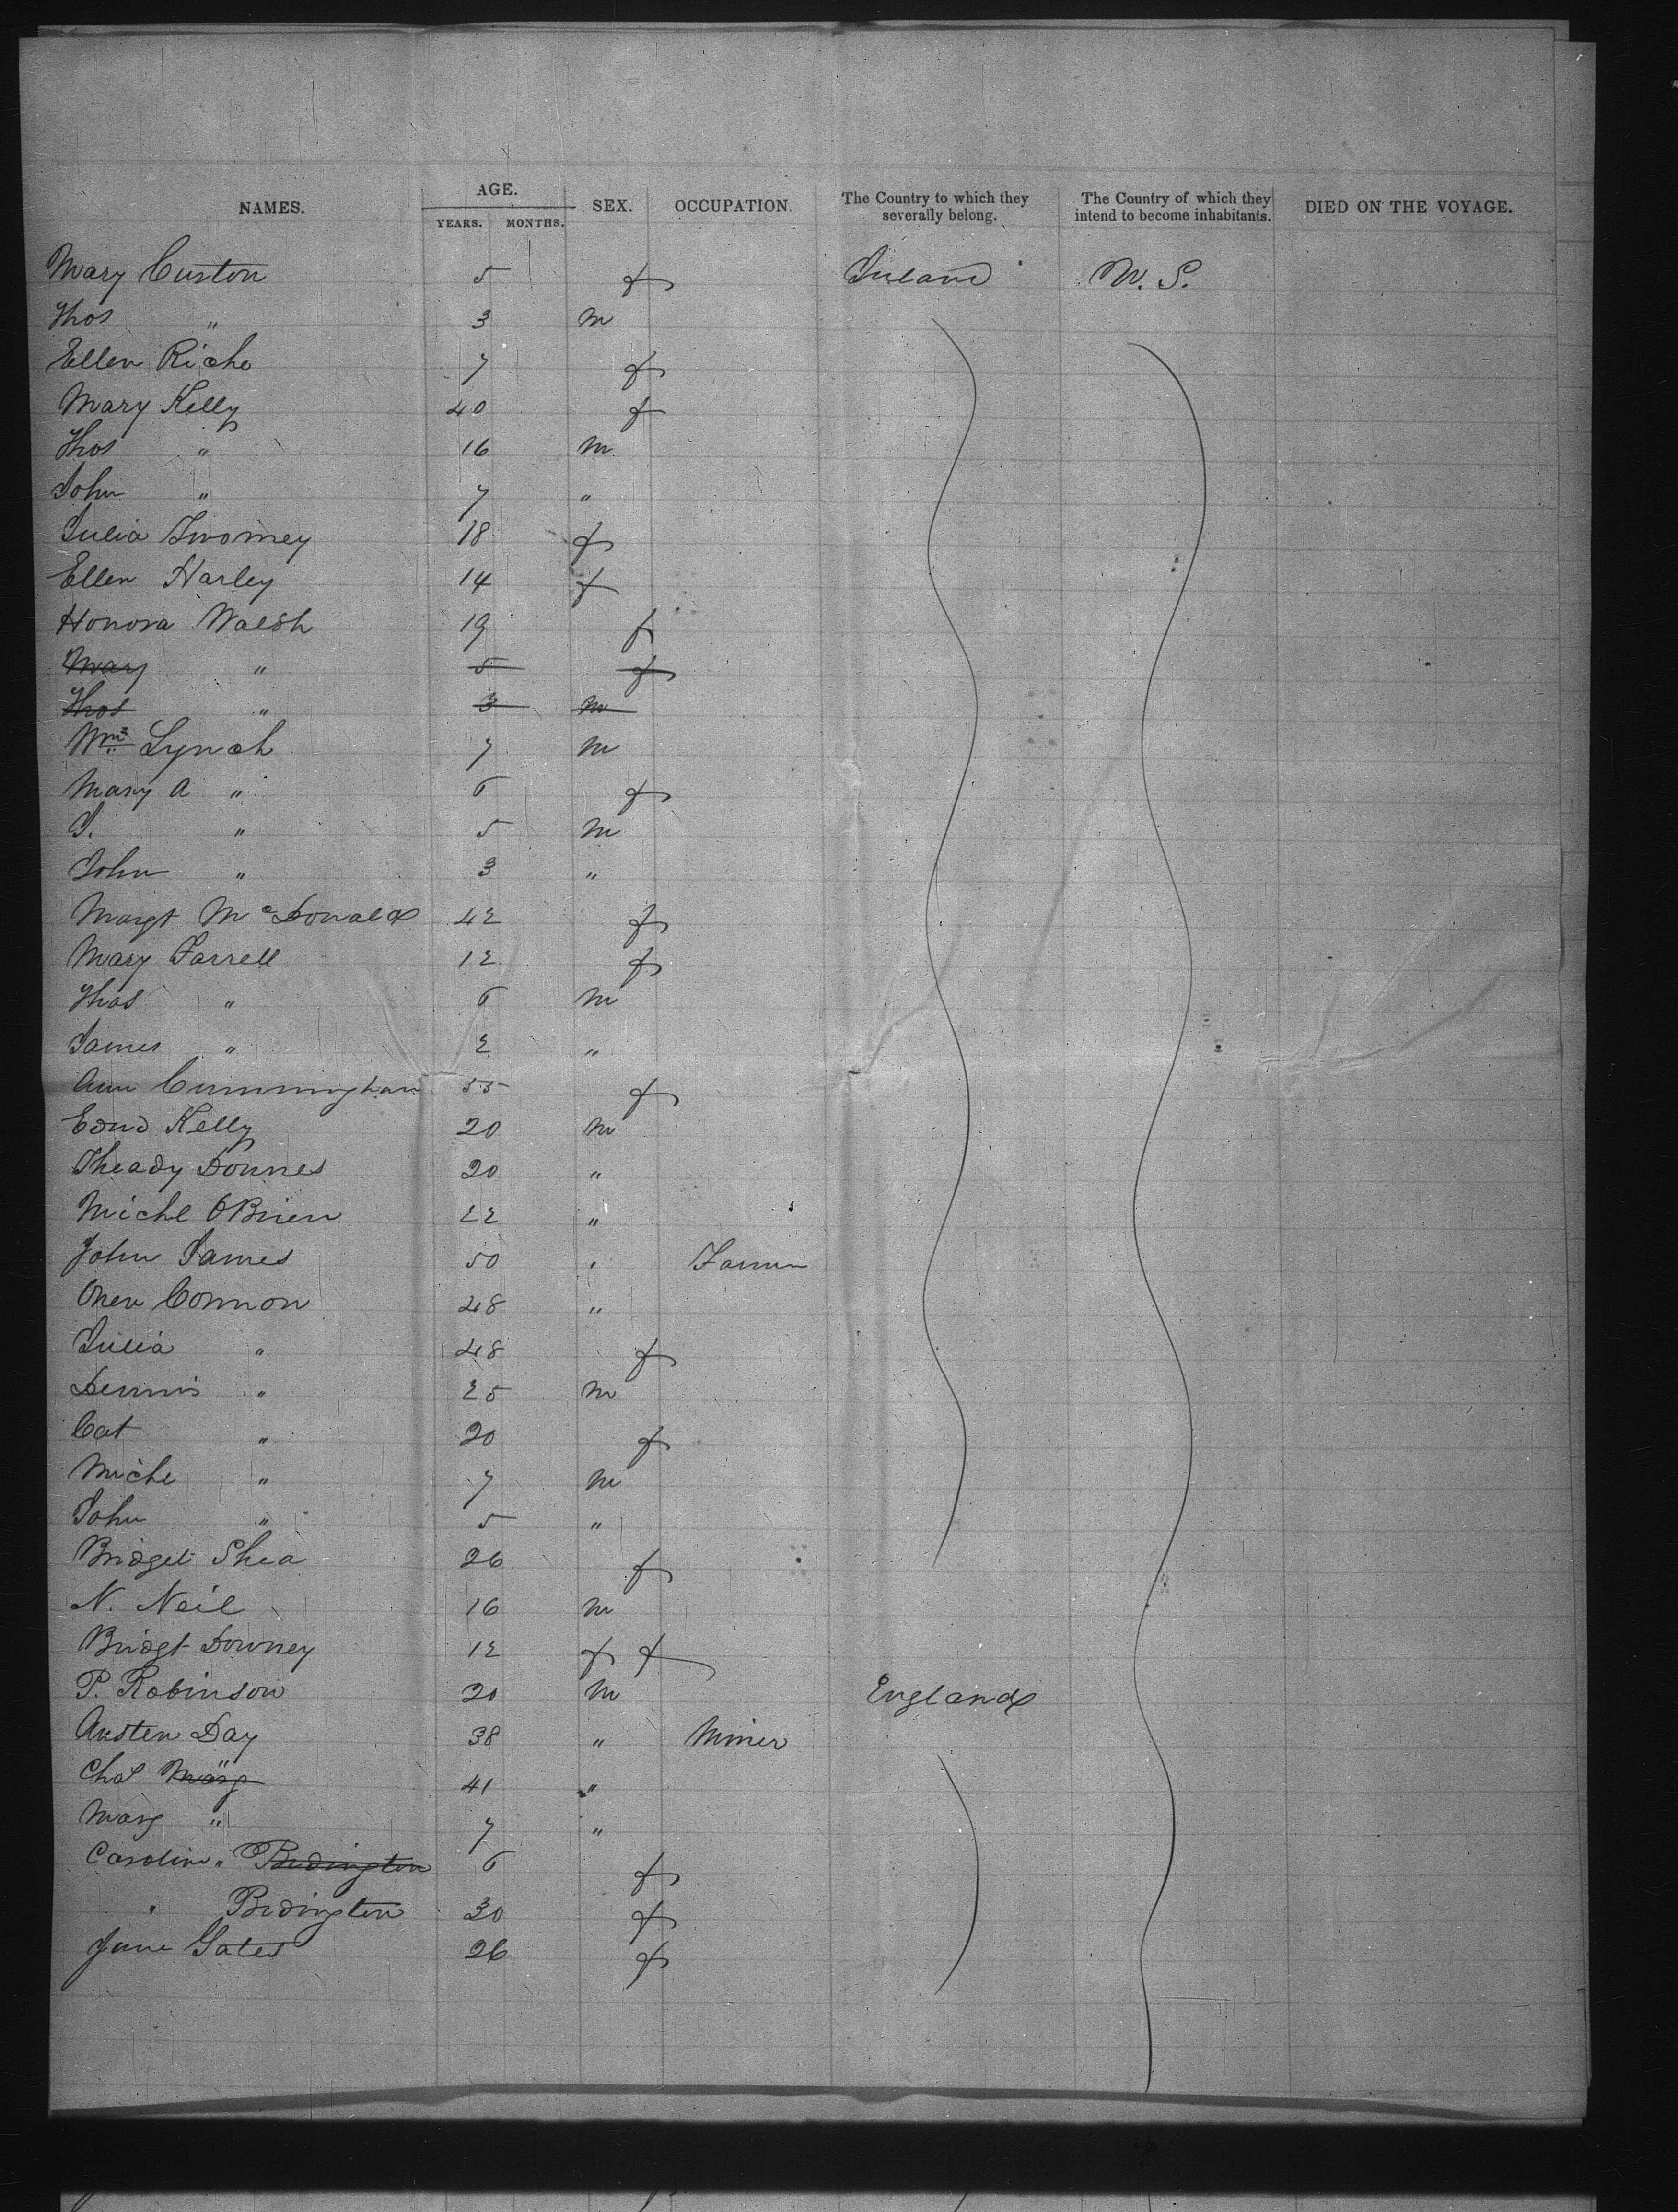 NAMES. AGE. SEX. OCCUPATION. The Country to which they severally belong. The Country of which they intend to become inhabitants. DIED ON THE VOYAGE.
YEARS. MONTHS.
Mary Curton 5 f Ireland U. S.
Thos " 3 m
Ellen Riche 7 f
Mary Kelly 40 f
Thos " 16 m
John " 7 "
Julia Twomey 18 f
Ellen Harley 14 f
Honora Walsh 19 f
Mary " 5 f
Thos " 3 m
Wm Lynch 7 m
Mary A " 6 f
J. " 5 m
John " 3 "
Margt McDonald 42 f
Mary Farrell 12 f
Thos " 6 m
James " 2 "
Ann Cunningham 55 f
Edmd Kelly 20 m
Theady Downes 20 "
Michl OBrien 22 "
John James 50 " Farmer
Owen Connon 48 "
Julia " 48 f
Dennis " 25 m
Cat " 20 f
Michl " 7 m
John " 5 "
Bridget Shea 26 f
N. Neil 16 m
Bridgt Downey 12 f f
P. Robinson 20 m England
Austen Day 38 " Miner
Chas Mary " 41 "
Mary " 7 "
Caroline " Bedington 6 f
" Bedington 30 f
Jane Gates 26 f